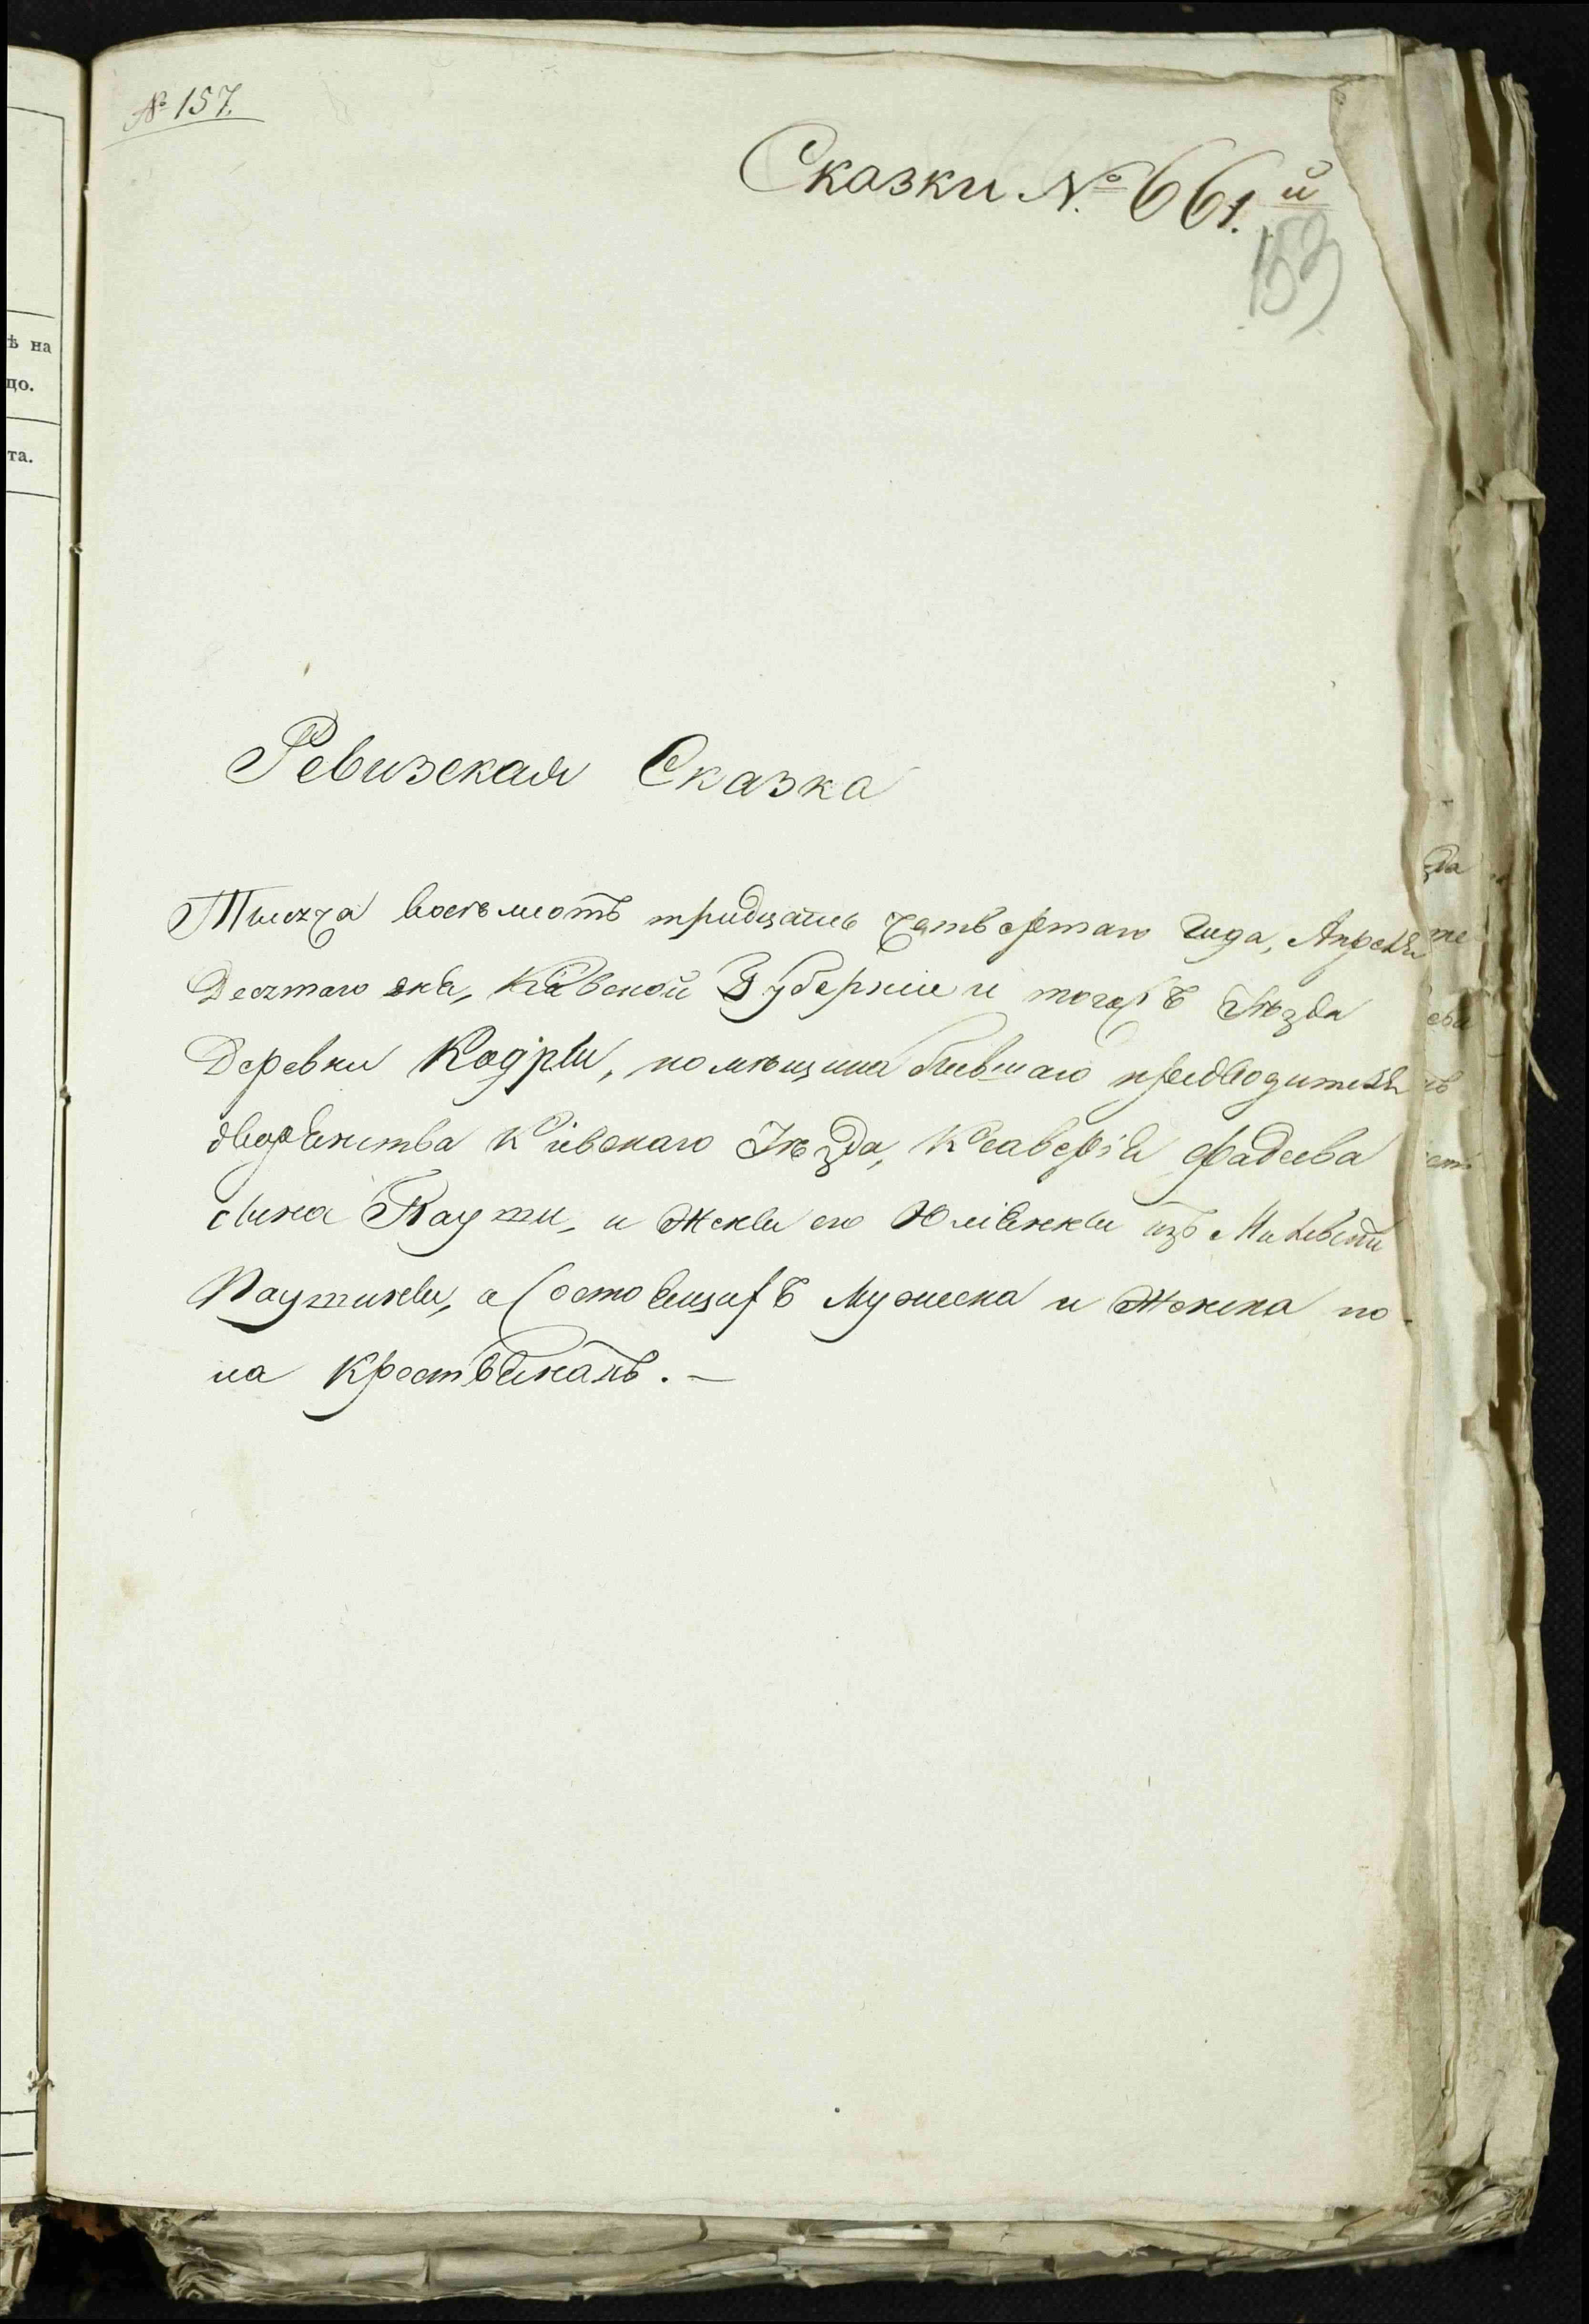 № 157.
Сказки №. 661.й
153
ѣ на
цо.
та.
Ревизская Сказка
Тысяча восемьсотъ тридцать четвертаго года, Апреля
Десятаго дня, Кіевской Губерніи и тогожъ Уѣзда
Деревни Кодры, помѣщика бывшаго предводителя
дворянства Кіевскаго Уѣзда, Ксаверія Фадеева
сына Пауши, и Жены его Юліянны изъ
Паушины, а Состоящихъ Мужеска и Женска по
ла крестьянахъ. –